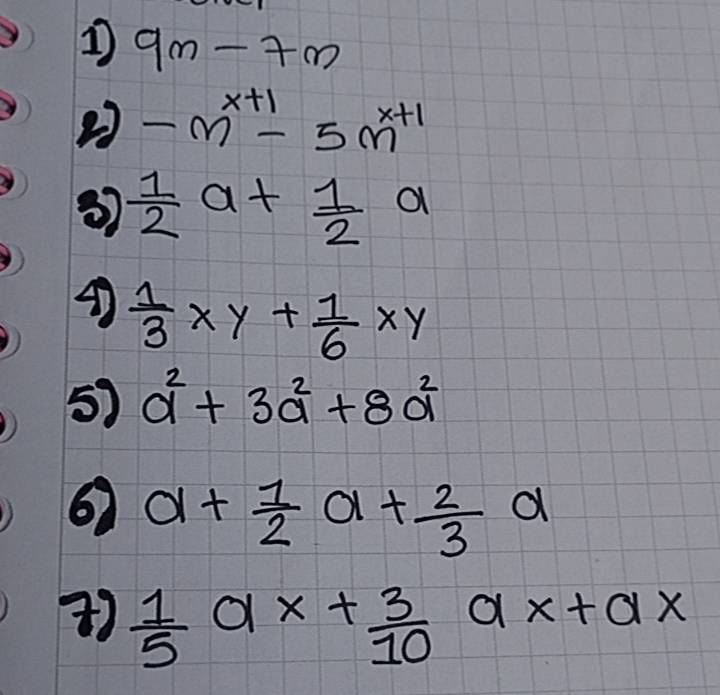 1) 9m - 7m
2) -m^{x+1} - 5m^{x+1}
3) \frac{1}{2} a + \frac{1}{2} a
4) \frac{1}{3} xy + \frac{1}{6} xy
5) a^2 + 3a^2 + 8a^2
6) a + \frac{1}{2} a + \frac{2}{3} a
7) \frac{1}{5} ax + \frac{3}{10} ax + ax